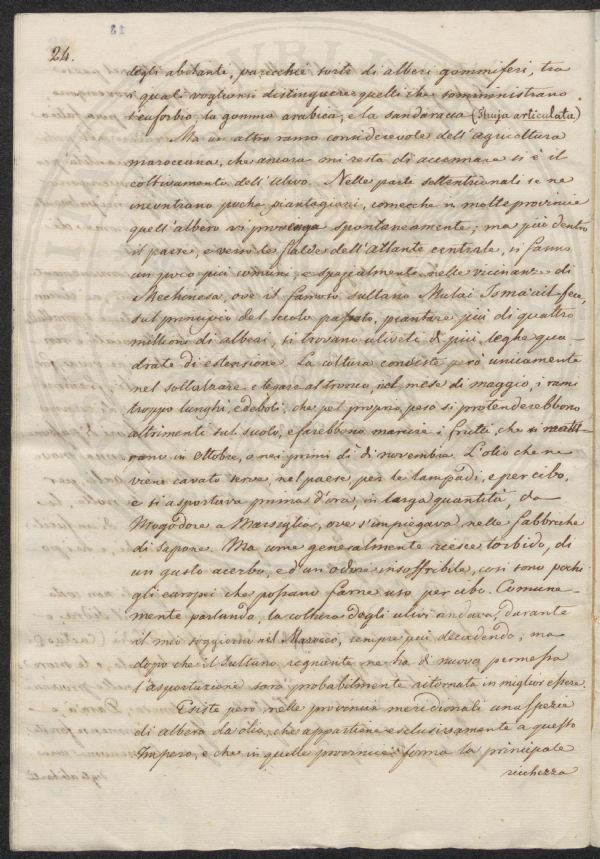 24.
degli abitante, parecchie sorti di alberi gommiferi, tra
i quali vogliono distinguere quelli che somministrano
l'euforbio, la gomma arabica, e la sandaraca (thuja articulata)
Ma un altro ramo considerevole dell'agricoltura
maroccana, che ancora mi resta di accennare si è il
coltivamento dell'ulivo. Nelle parti settentrionali se ne
incontrano poche piantagioni, comecche in molte provincie
quell'albero vi provenga spontaneamente; ma più dentro
il paese, e verso le falde dell'Atlante centrale, si fanno
un poco più comuni, e spezialmente nelle vicinanze di
Mechinesa, ove il famoso sultano Mulai Ismaail fece,
sul principio del secolo passato, piantare più di quattro
millioni di alberi, si trovano uliveti di più leghe qua-
drate di estensione. La coltura consiste però unicamente
nel soltalzare e legare al tronco, nel mese di maggio, i rami
troppo lunghi e deboli, che pel proprio peso si protenderebbono
altrimenti sul suolo, e farebbono marcire i frutti, che si matu-
rano in Ottobre, o nei primi dì di novembre. L'olio che ne
viene cavato serve, nel paese, per le lampadi, e per cibo,
e si asportava prima d'ora, in larga quantità, da
Mogodore a Marsiglia, ove s'impiegava nelle fabbriche
di sapone. Ma come generalmente riesce torbido, di
un gusto acerbo, e d'un odore insoffribile, così sono pochi
gli europei che possano farne uso per cibo. Comune-
mente parlando, la coltura degli ulivi andava, durante
il mio soggiorno nel Marocco, sempre più decadendo; ma
dopo che il Sultano regnante ne ha di nuovo permessa
l'asportazione sarà probabilmente ritornata in miglior essere.
Esiste però nelle provincie meridionali una spezie
di albero da olio, che appartiene esclusivamente a questo
Impero, e che in quelle provincie forma la principale
ricchezza